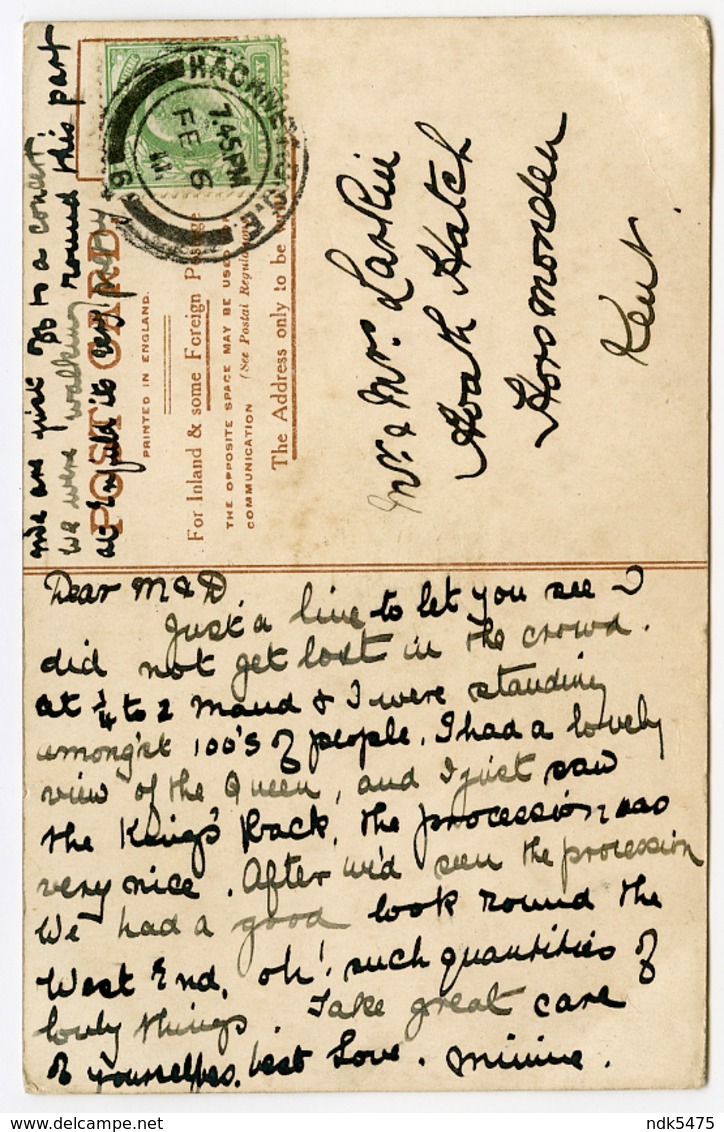 Dear M & D.
Just a line to let you see I
did not get lost in the crowd.
at ¼ to 2 Maud & I were standing
amongst 100's of people. I had a lovely
view of the Queen, and I just saw
the King's Back, the procession was
very nice. After we'd seen the procession
We had a good look round the
West End, oh! such quantities of
lovly things. Take great care
of yourselves. best Love. Minnie.
we are just off to a concert
we were walking round this part
at
it
POST CARD
PRINTED IN ENGLAND.
For Inland & some Foreign Postage
THE OPPOSITE SPACE MAY BE USED
COMMUNICATION (See Postal Regulations
The Address only to be
HACKNEY
7.45PM
FE 6
11
N.E.
6
Mr. & Mrs. Larkin
Hoath Hatch
Horsmonden
Kent.
ndk5475